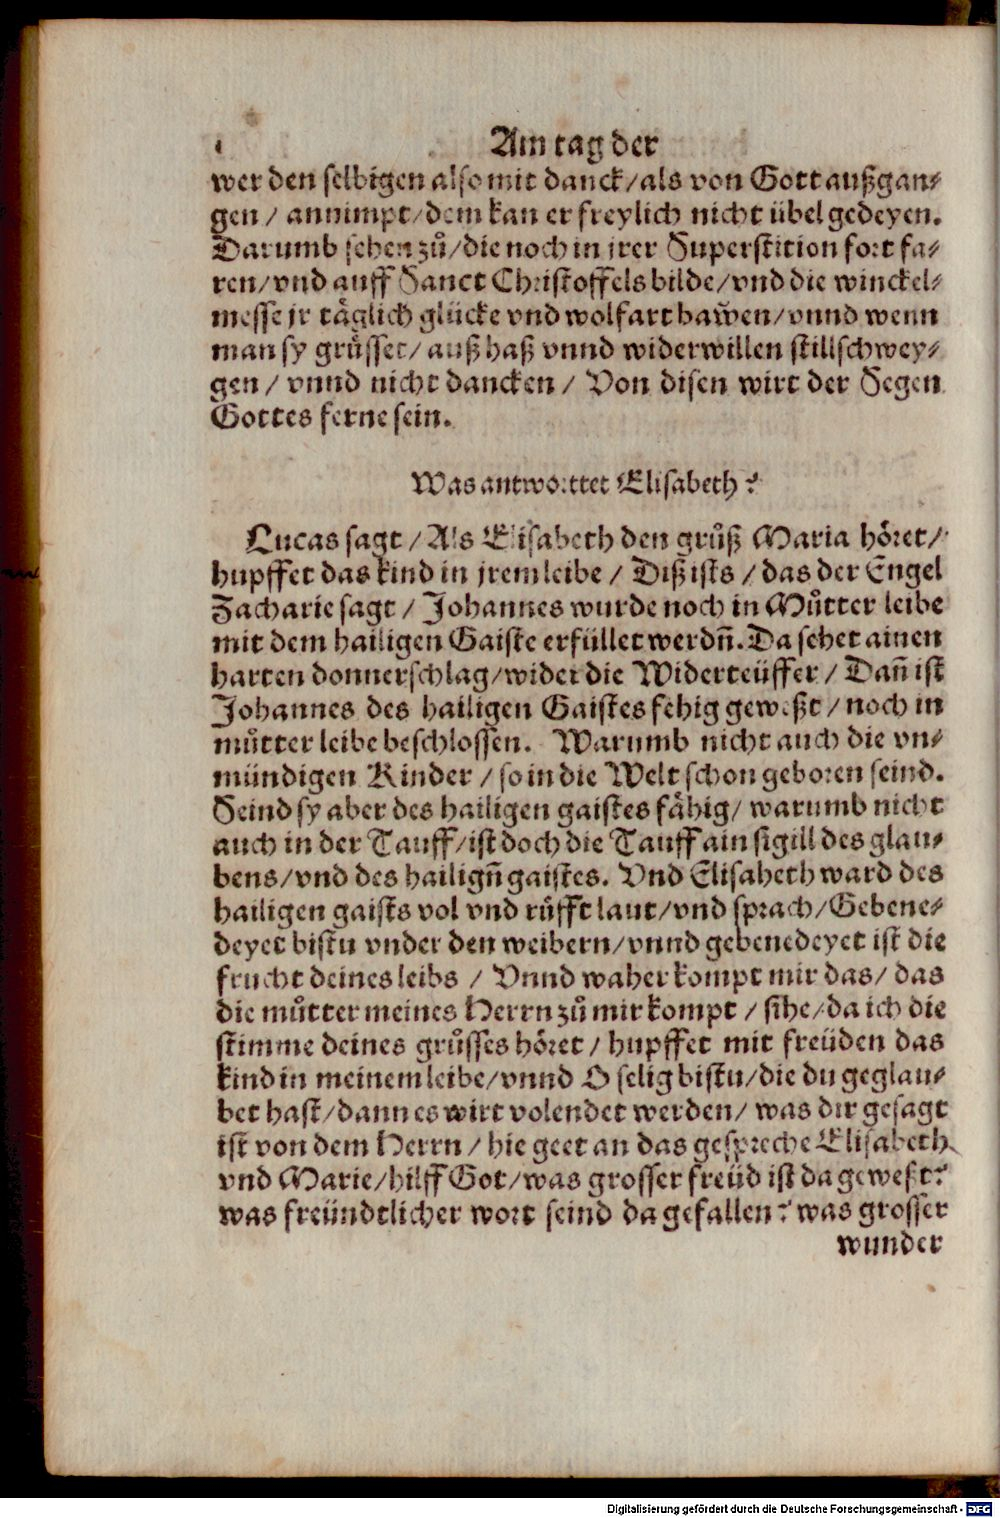 Am tag der
wer den selbigen also mit danck/als von Gott außgan⸗
gen / annimpt/dem kan er freylich nicht übel gedeyen.
Darumb sehen zů/die noch in jrer Superstition fort fa⸗
ren/vnd auff Sanct Christoffels bilde/vnd die winckel⸗
messe jr täglich glücke vnd wolfart bawen/vnnd wenn
man sy grůsset/auß haß vnnd widerwillen stillschwey⸗
gen / vnnd nicht dancken / Von disen wirt der Segen
Gottes ferne sein.
Was antworttet Elisabeth?
Lucas sagt / Als Elisabeth den grůß Maria höret/
hupffet das kind in jrem leibe / Diß ists / das der Engel
Zacharie sagt / Johannes wurde noch in Můtter leibe
mit dem hailigen Gaiste erfüllet werdn̄. Da sehet ainen
harten donnerschlag/wider die Widerteüffer / Dan̄ ist
Johannes des hailigen Gaistes fehig geweßt / noch in
můtter leibe beschlossen. Warumb nicht auch die vn⸗
mündigen Kinder / so in die Welt schon geboren seind.
Seind sy aber des hailigen gaistes fähig/ warumb nicht
auch in der Tauff/ist doch die Tauff ain sigill des glau⸗
bens/vnd des hailign̄ gaistes. Vnd Elisabeth ward des
hailigen gaists vol vnd růfft laut/vnd sprach/Gebene⸗
deyet bistu vnder den weibern/vnnd gebenedeyet ist die
frucht deines leibs / Vnnd waher kompt mir das/ das
die můtter meines Herrn zů mir kompt / sihe/da ich die
stimme deines grůsses höret / hupffet mit freüden das
kind in meinem leibe/vnnd O selig bistu/die du geglau⸗
bet hast/dann es wirt volendet werden/ was dir gesagt
ist von dem Herrn / hie geet an das gespreche Elisabeth
vnd Marie/hilff Got/was grosser freüd ist da geweßt?
was freündtlicher wort seind da gefallen? was grosser
wunder
Digitalisierung gefördert durch die Deutsche Forschungsgemeinschaft - DFG